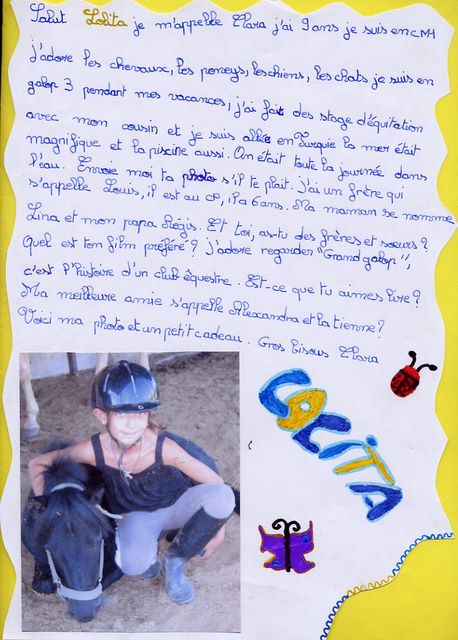 Salut Lolita je m'appelle Clara j'ai 9 ans je suis en CM1
j'adore les chevaux, les poneys, les chiens, les chats je suis en
galop 3 pendant mes vacances, j'ai fait des stage d'équitation
avec mon cousin et je suis allée en Turquie la mer était
magnifique et la piscine aussi. On était toute la journée dans
l'eau. Envoie moi ta photo s'il te plait. J'ai un frère qui
s'appelle Louis, il est au CP, il a 6 ans. Ma maman se nomme
Lina et mon papa Régis. Et toi, as-tu des frères et soeurs?
Quel est ton film préféré? J'adore regarder "Grand galop",
c'est l'histoire d'un club équestre. Est-ce que tu aimes lire?
Ma meilleure amie s'appelle Alexandra et la tienne?
Voici ma photo et un petit cadeau. Gros bisous Clara
LOLITA